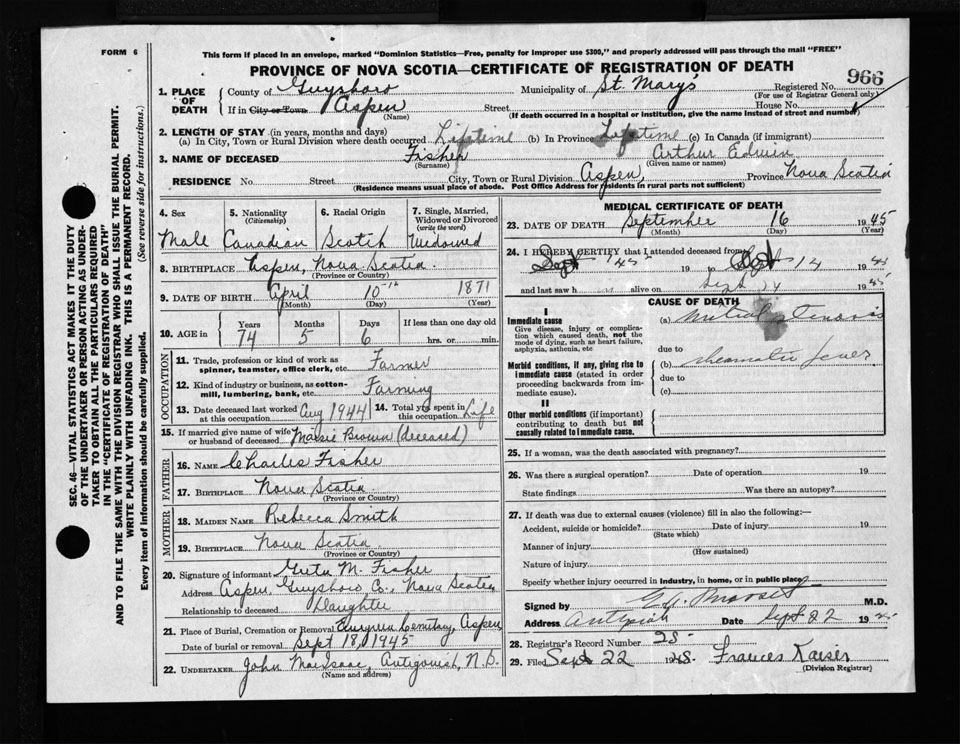 FORM 6
This form if placed in an envelope, marked "Dominion Statistics—Free, penalty for improper use $300," and properly addressed will pass through the mail "FREE"
PROVINCE OF NOVA SCOTIA—CERTIFICATE OF REGISTRATION OF DEATH
966
1. PLACE OF DEATH
County of Guysboro Municipality of St. Mary's Registered No.
(For use of Registrar General only)
If in City or Town Aspen Street House No.
(Name) (If death occurred in a hospital or institution, give the name instead of street and number)
2. LENGTH OF STAY (in years, months and days)
(a) In City, Town or Rural Division where death occurred Lifetime (b) In Province Lifetime (c) In Canada (if immigrant)
3. NAME OF DECEASED Fisher Arthur Edwin
(Surname) (Given name or names)
RESIDENCE No. Street City, Town or Rural Division Aspen, Province Nova Scotia
(Residence means usual place of abode. Post Office Address for residents in rural parts not sufficient)
4. Sex Male
5. Nationality (Citizenship) Canadian
6. Racial Origin Scotch
7. Single, Married, Widowed or Divorced (write the word) Widowed
8. BIRTHPLACE Aspen, Nova Scotia
(Province or Country)
9. DATE OF BIRTH April 10th 1871
(Month) (Day) (Year)
10. AGE in Years 74 Months 5 Days 6 If less than one day old hrs. or min.
OCCUPATION
11. Trade, profession or kind of work as spinner, teamster, office clerk, etc. Farmer
12. Kind of industry or business, as cotton-mill, lumbering, bank, etc. Farming
13. Date deceased last worked at this occupation Aug 1944
14. Total yrs spent in this occupation Life
15. If married give name of wife or husband of deceased Brown (deceased)
FATHER
16. NAME Charles Fisher
17. BIRTHPLACE Nova Scotia
(Province or Country)
MOTHER
18. MAIDEN NAME Rebecca Smith
19. BIRTHPLACE Nova Scotia
(Province or Country)
20. Signature of informant Greta M. Fisher
Address Aspen, Guysboro Co., Nova Scotia
Relationship to deceased Daughter
21. Place of Burial, Cremation or Removal Cemitary, Aspen
Date of burial or removal Sept 18, 1945
22. UNDERTAKER John MacIsaac, Antigonish, N.S.
(Name and address)
MEDICAL CERTIFICATE OF DEATH
23. DATE OF DEATH September 16 1945
(Month) (Day) (Year)
24. I HEREBY CERTIFY that I attended deceased from
Sept 19 to Sept 14 1945
and last saw h alive on Sept 14 1945
CAUSE OF DEATH
I
Immediate cause
Give disease, injury or complication which caused death, not the mode of dying, such as heart failure, asphyxia, asthenia, etc
(a) Mitral Stenosis
due to
Morbid conditions, if any, giving rise to immediate cause (stated in order proceeding backwards from immediate cause).
(b) rheumatic fever
due to
(c)
II
Other morbid conditions (if important) contributing to death but not causally related to immediate cause.
25. If a woman, was the death associated with pregnancy?
26. Was there a surgical operation? Date of operation 19
State findings Was there an autopsy?
27. If death was due to external causes (violence) fill in also the following:—
Accident, suicide or homicide? Date of injury 19
(State which)
Manner of injury
(How sustained)
Nature of injury
Specify whether injury occurred in industry, in home, or in public place
Signed by M.D.
Address Date Sept 22 19
28. Registrar's Record Number 28
29. Filed Sept 22 19 Frances Kaiser
(Division Registrar)
SEC. 46—VITAL STATISTICS ACT MAKES IT THE DUTY
OF THE UNDERTAKER OR PERSON ACTING AS UNDER-
TAKER TO OBTAIN ALL THE PARTICULARS REQUIRED
IN THE "CERTIFICATE OF REGISTRATION OF DEATH"
AND TO FILE THE SAME WITH THE DIVISION REGISTRAR WHO SHALL ISSUE THE BURIAL PERMIT.
WRITE PLAINLY WITH UNFADING INK. THIS IS A PERMANENT RECORD.
Every item of information should be carefully supplied. (See reverse side for instructions.)